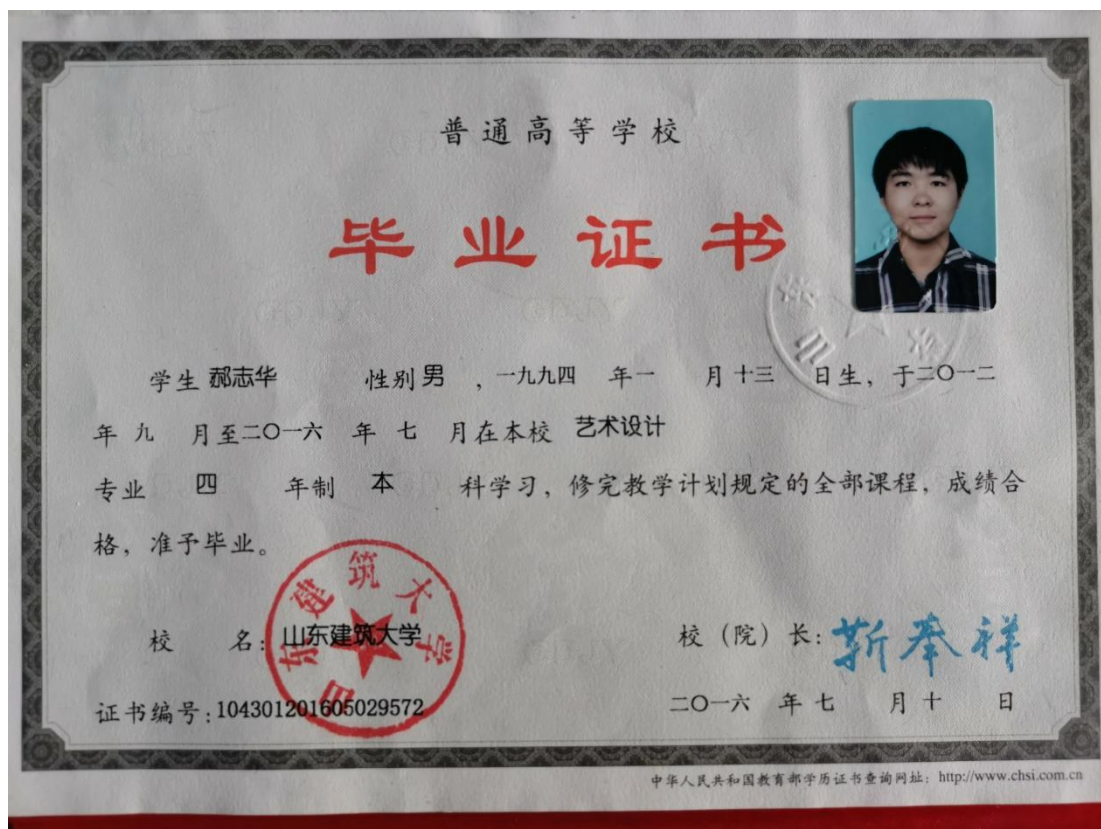 普通高等学校
毕业证书
学生 郝志华 性别 男 ，一九九四 年一 月十三 日生，于二〇一二
年 九 月至二〇一六 年 七 月在本校 艺术设计
专业 四 年制 本 科学习，修完教学计划规定的全部课程，成绩合
格，准予毕业。
山东建筑大学
校 名：山东建筑大学
校（院）长：靳奉祥
证书编号：104301201605029572
二〇一六 年 七 月 十 日
中华人民共和国教育部学历证书查询网址：http://www.chsi.com.cn